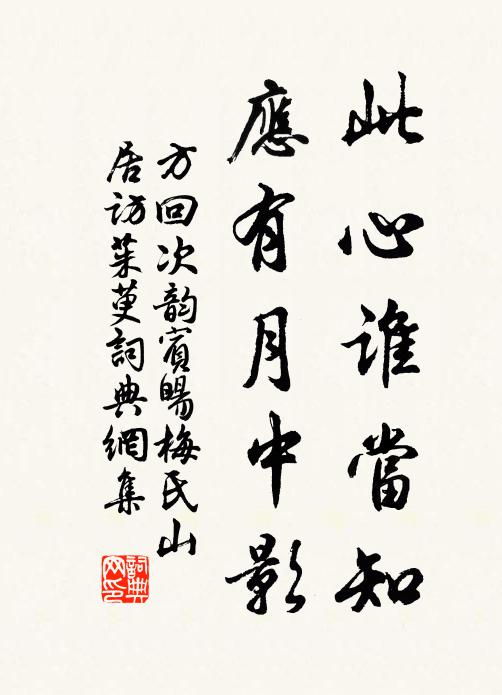 此心誰當知
應有月中影
方回次韵賓暘梅氏山
居訪茱萸詞典網集
詞典
网印